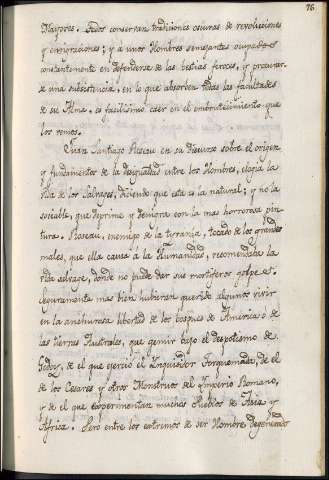 76
Mayores. Todos conservan tradiciones oscuras de revoluciones
y emigraciones; y a unos Hombres semejantes ocupados
constantemente en defenderse de las bestias feroces, y procurar-
se una subsistencia, en lo que absorben todas las facultades
de su Alma, es facilisimo caer en el embrutecimiento que
los vemos.
Juan Santiago Roseau en su discurso sobre el origen
y fundamentos de la desigualdad entre los Hombres, elogia la
vida de los Salvages, diciendo que esta es la natural; y no la
sociable, que deprime y denigra con la mas horrorosa pin-
tura. Roseau, enemigo de la tyrania, tocado de los grandes
males, que ella causa à la Humanidad, recomendaba la
vida salvage, donde no puede dar sus mortiferos golpes.
Seguramente mas bien hubieran querido algunos vivir
en la anchurosa libertad de los bosques de America ò de
las tierras Australes, que gemir bajo el despotismo de
Godoy, de el que exerció el Inquisidor Torquemada, de el
de los Cesares y otros Monstruos del Imperio Romano,
y de el que experimentan muchos Pueblos de Asia y
Africa. Pero entre los extremos de ser Hombre degenerado